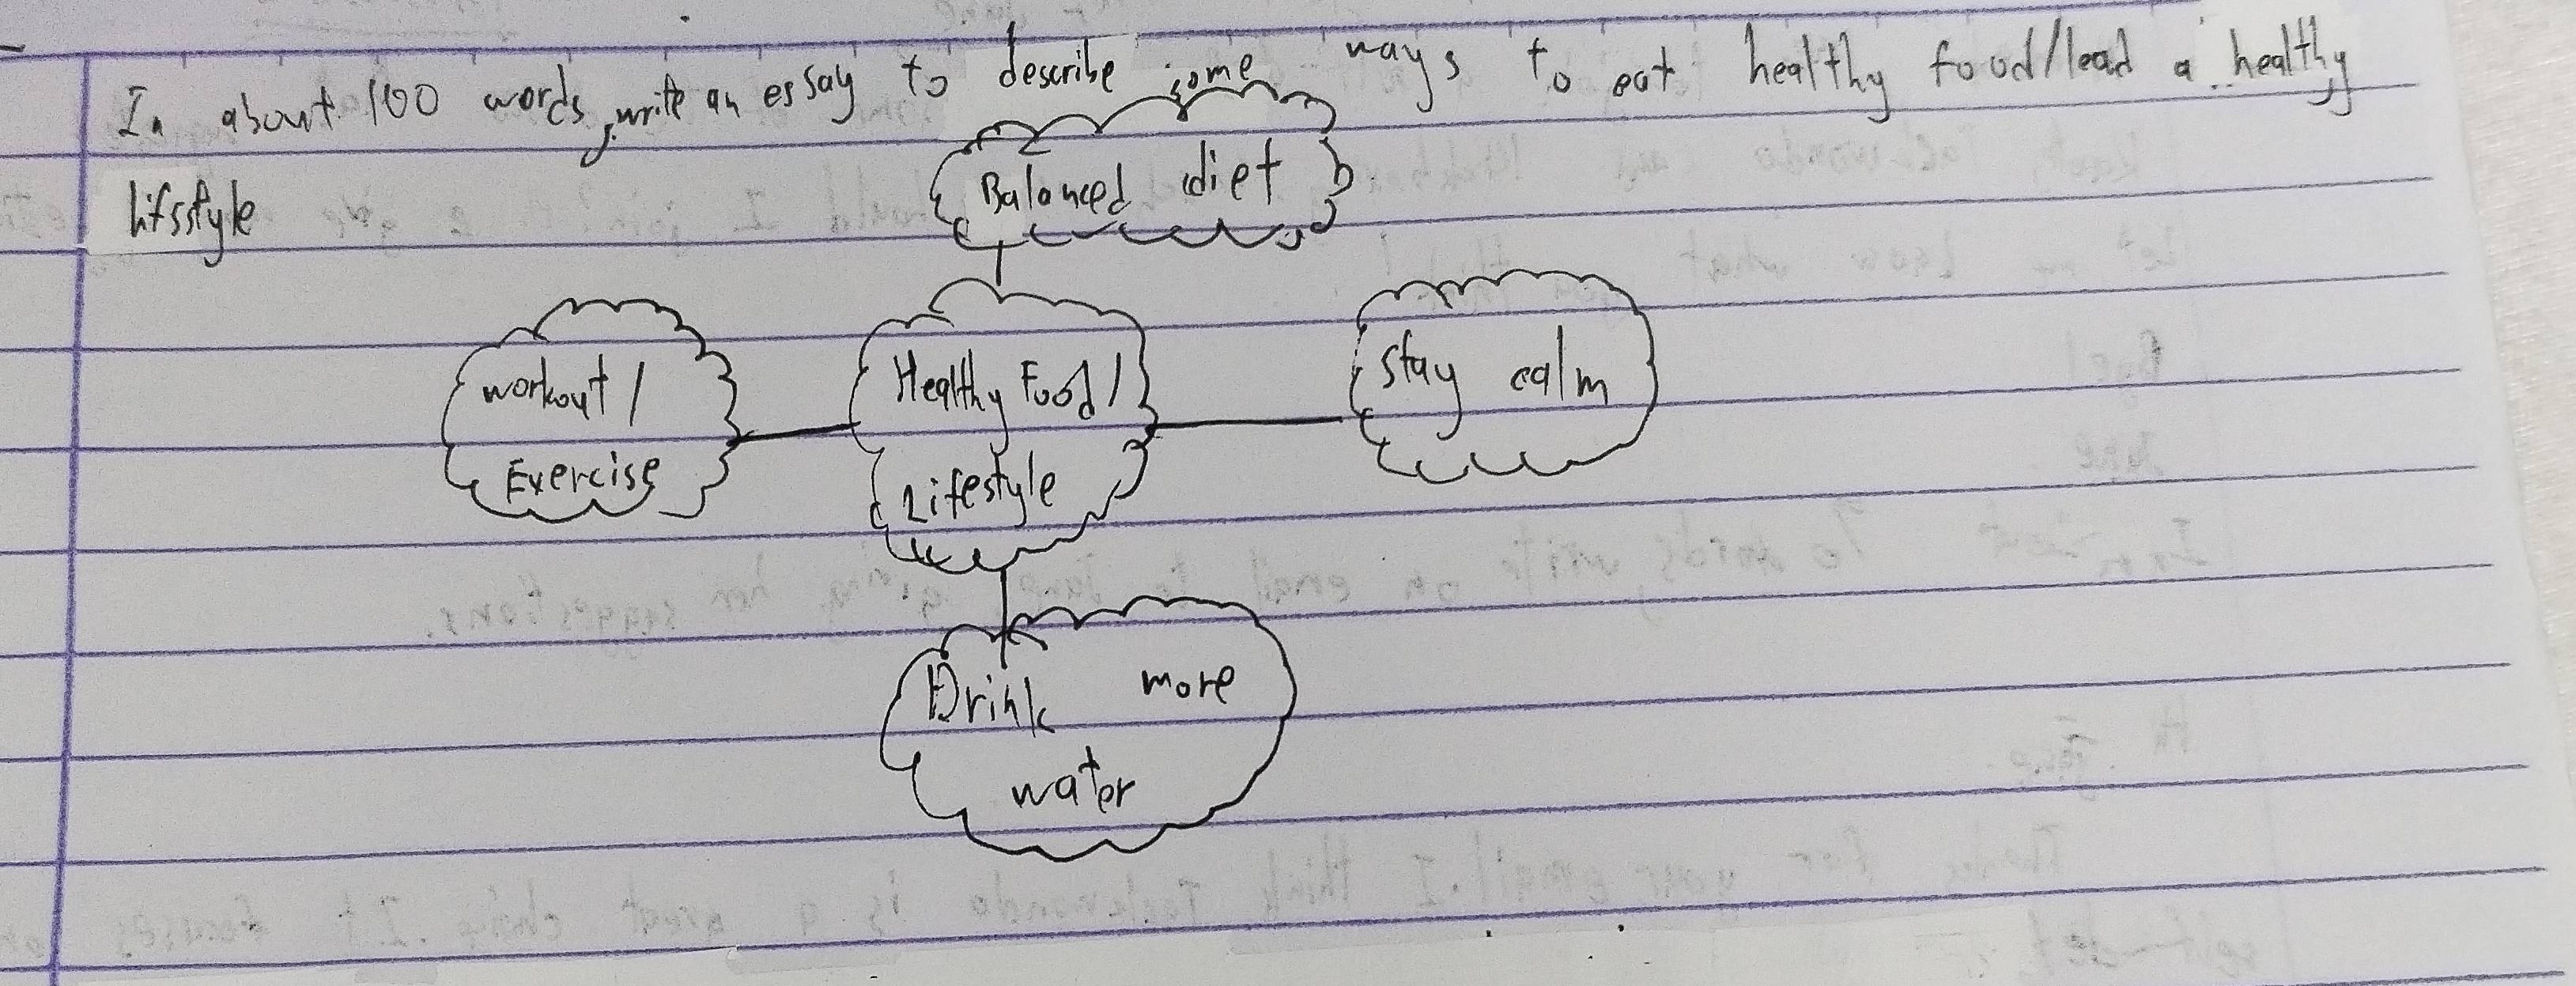 In about 100 words, write an essay to describe some ways to eat healthy food/lead a healthy
lifsstyle
Balanced diet
workout /
Exercise
Healthy Food /
Lifestyle
stay calm
Drink more
water